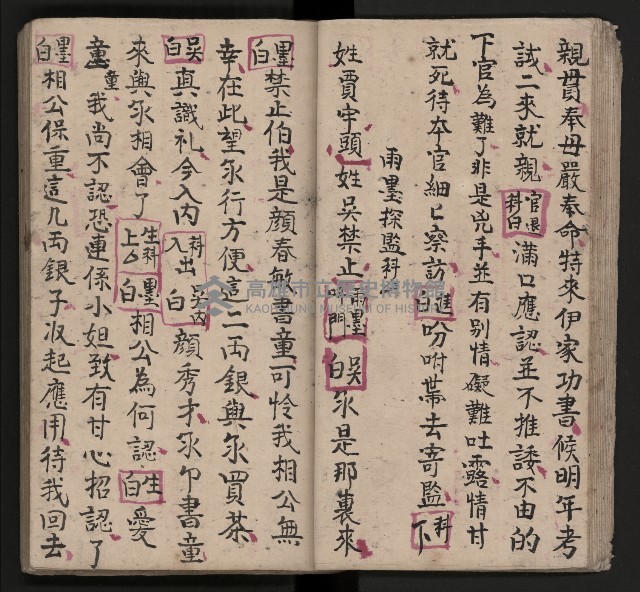 親貫奉母嚴奉命特來伊家功書候明年考
試二來就親官很科白滿口應認並不推諉不由的
下官為難了非是兇手並有別情礙難吐露情甘
就死待本官細匕察訪進白吩咐帶去寄監科下
雨墨探監科
姓賈牢頭一姓吳禁止雨墨叫門吳白汝是那裏來
墨白禁止伯我是顏春敏書童可怜我相公無
幸在此望汝行方便這二兩銀與汝買茶
吳白真識礼今入內科出入吳內白顏秀才汝卬書童
來與汝相會了生科上厶墨白相公為何認生白愛
童童我尚不認恐連係小姐致有甘心招認了
墨白相公保重這几兩銀子收起應用待我回去
高雄市立歷史博物館
KAOHSIUNG MUSEUM OF HISTORY